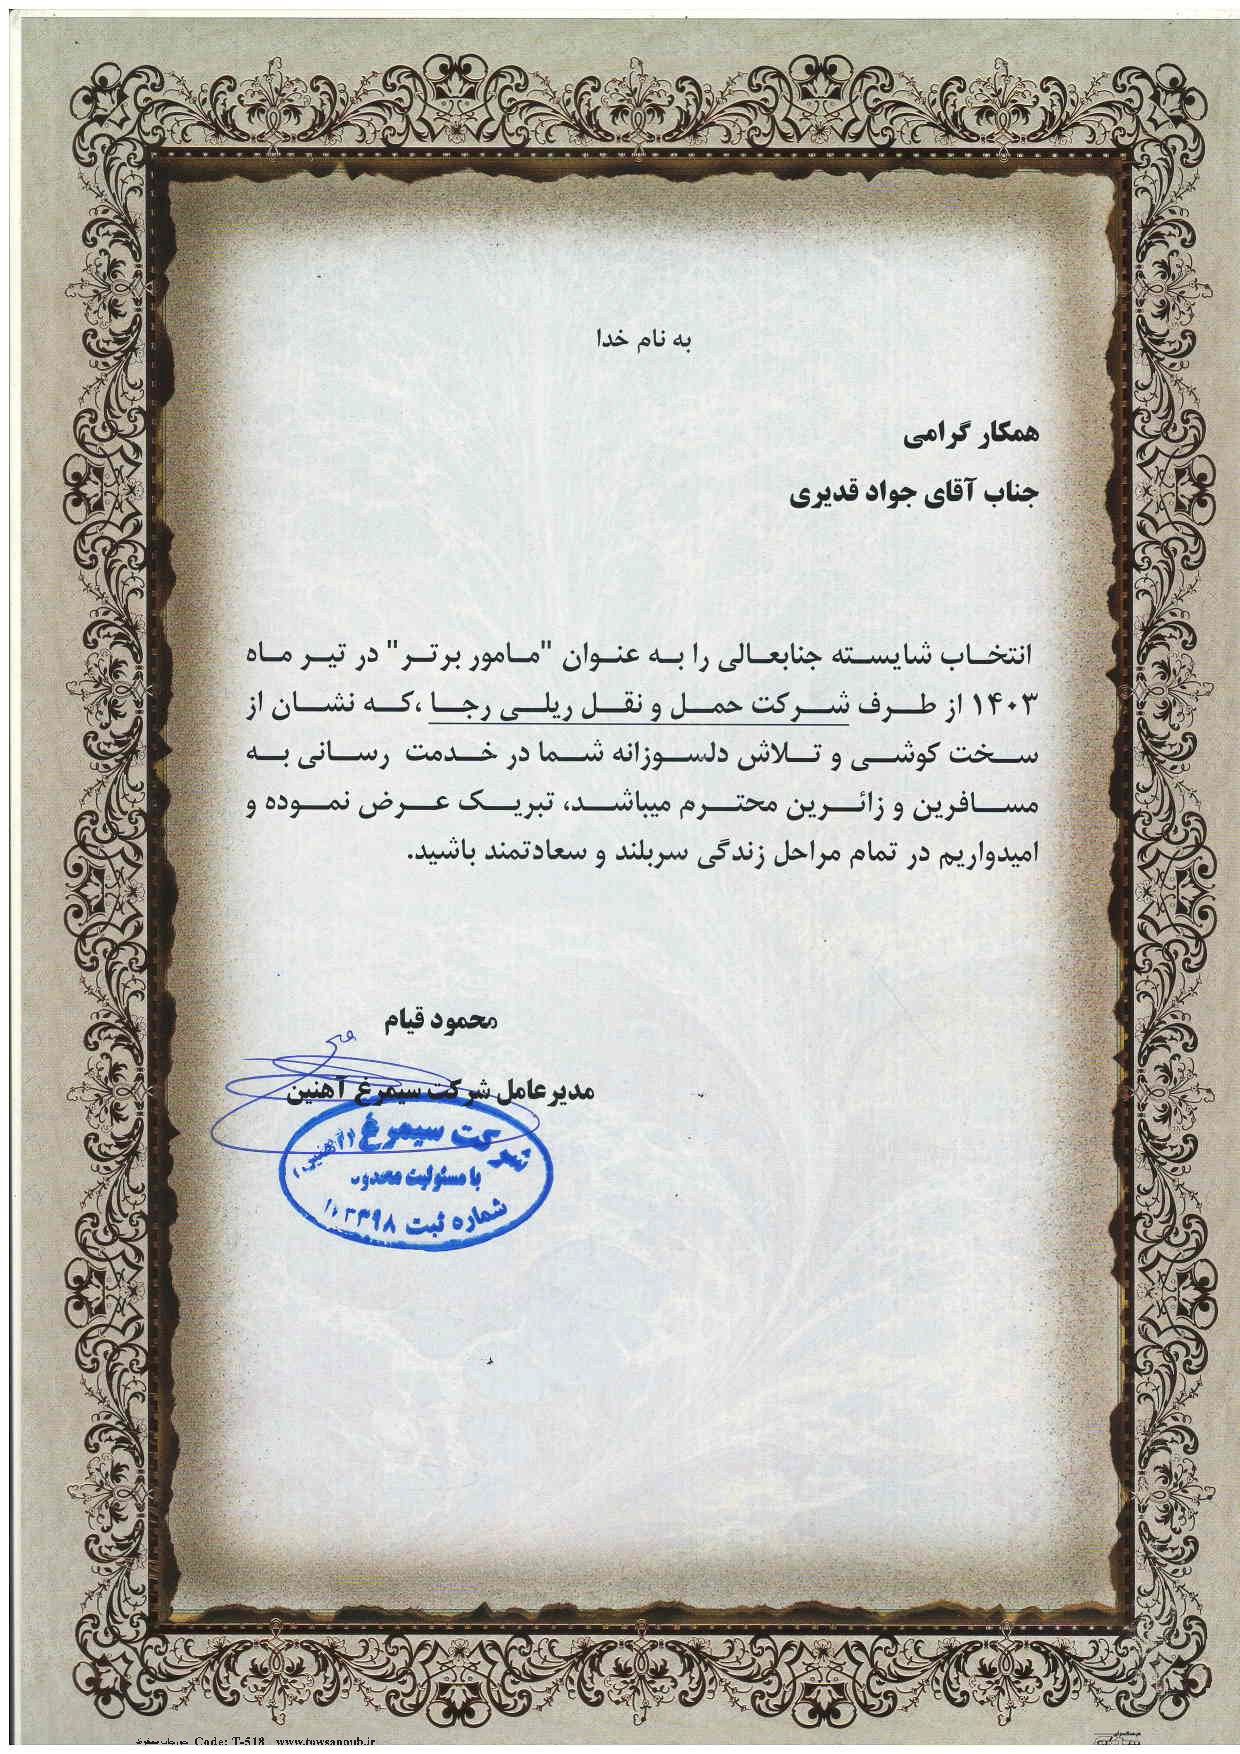 به نام خدا
همکار گرامی
جناب آقای جواد قدیری
انتخاب شایسته جنابعالی را به عنوان "مامور برتر" در تیر ماه
۱۴۰۳ از طرف شرکت حمل و نقل ریلی رجا ،که نشان از
سخت کوشی و تلاش دلسوزانه شما در خدمت رسانی به
مسافرین و زائرین محترم میباشد، تبریک عرض نموده و
امیدواریم در تمام مراحل زندگی سربلند و سعادتمند باشید.
محمود قیام
مدیر عامل شرکت سیمرغ آهنین
شرکت سیمرغ
با مسئولیت محدود
شماره ثبت
Code: T-518 www.towsanoub.ir